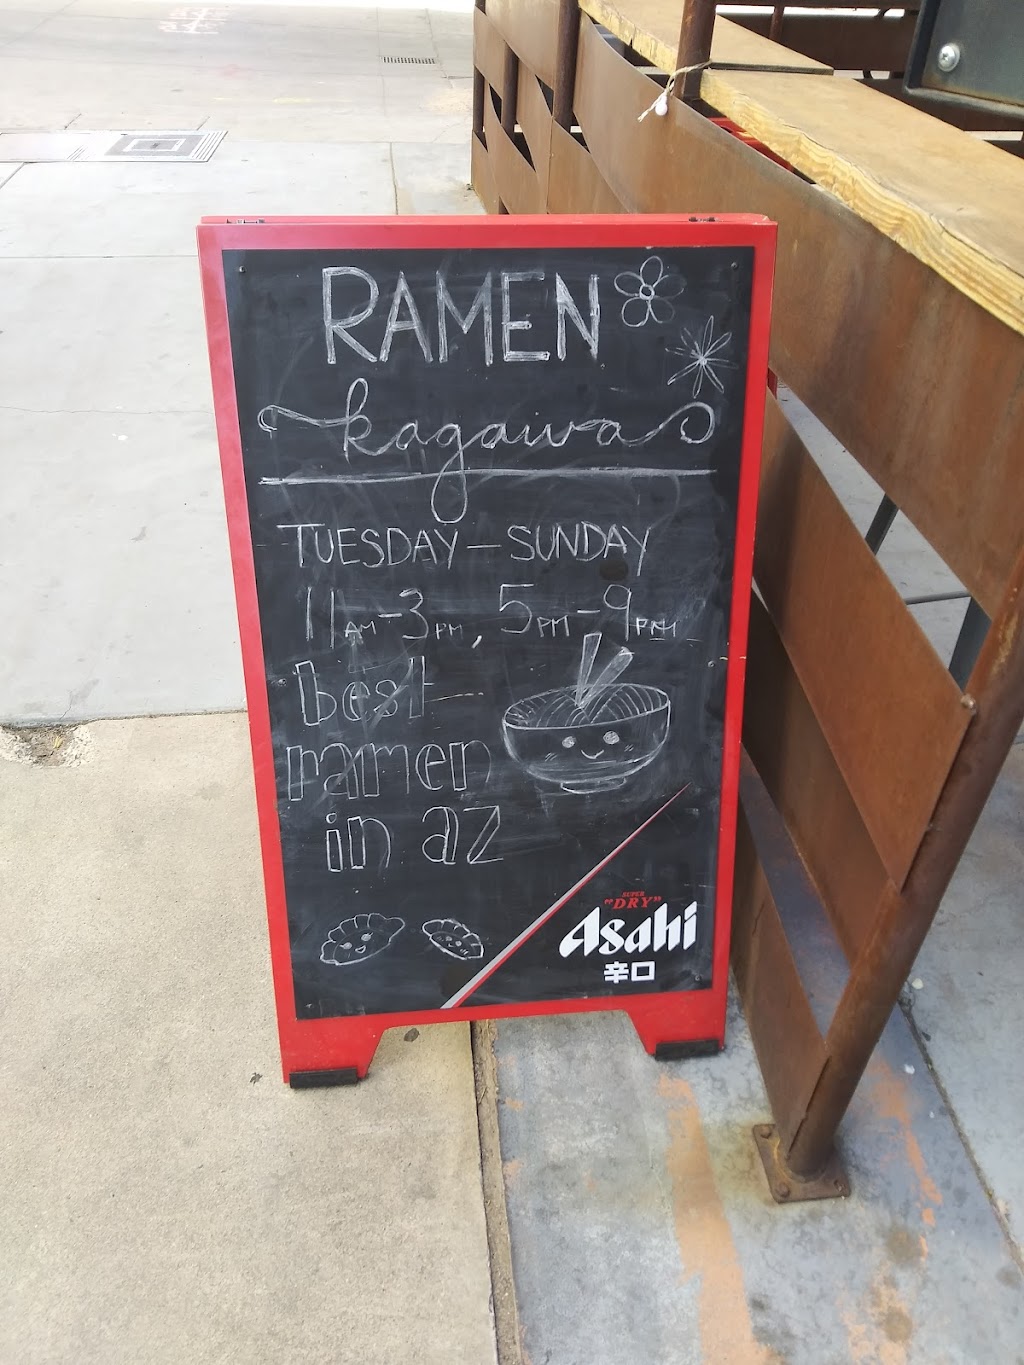 RAMEN
kagawa
TUESDAY – SUNDAY
11AM-3PM, 5PM-9PM
best
ramen
in az
SUPER
"DRY"
Asahi
辛口